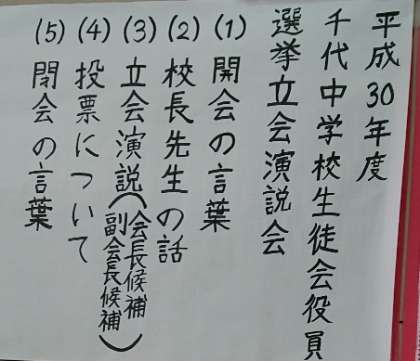 平成30年度
千代中学校生徒会役員
選挙立会演説会
(1) 開会の言葉
(2) 校長先生の話
(3) 立会演説(会長候補
副会長候補)
(4) 投票について
(5) 閉会の言葉